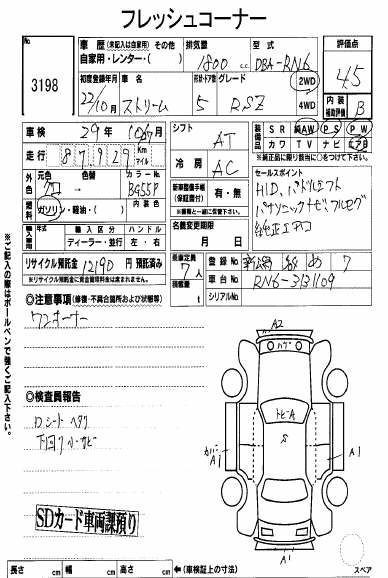 フレッシュコーナー
No.
3198
車歴 (未記入は自家用) その他
自家用・レンター・( )
排気量
1800 cc
型式
DBA-RN6
評価点
4.5
初度登録年月
22/10月
車名
ストリーム
形状・ドア数
5
グレード
RSZ
2WD
4WD
内装
補助評価
B
車検 29年 10月
走行 87929 Km マイル
シフト
AT
装備品
SR 純AW PS PW
カワ TV ナビ エアB
※純正品に限り該当に○をつけて下さい。
外色
元色
クロ
色替
カラーNo.
BG55P
冷房
AC
セールスポイント
HID、パドルシフト
パナソニックナビ フルセグ
純正エアロ
燃料
ガソリン・軽油・( )
内装色
新車整備手帳
(保証書付)
有・無
輸入車
輸入区分
ディーラー・並行
ハンドル
左・右
名義変更期限
月 日
リサイクル預託金 12190 円 預託済み
※リサイクル預託金に資金管理料金は含まれません。
乗車定員
7人
積載量
t
登録No.
新潟 7
車台No.
RN6-3131109
シリアルNo.
◎注意事項 (修復・不具合箇所および状態等)
ワンオーナー
※ご記入の際はボールペンで強くご記入下さい。
◎検査員報告
Dシート ヘタリ
下回り小サビ
SDカード車両課預り
A2
トビA
S
A1
A1
A1
スペア
長さ cm 幅 cm 高さ cm ←(車検証上の寸法)